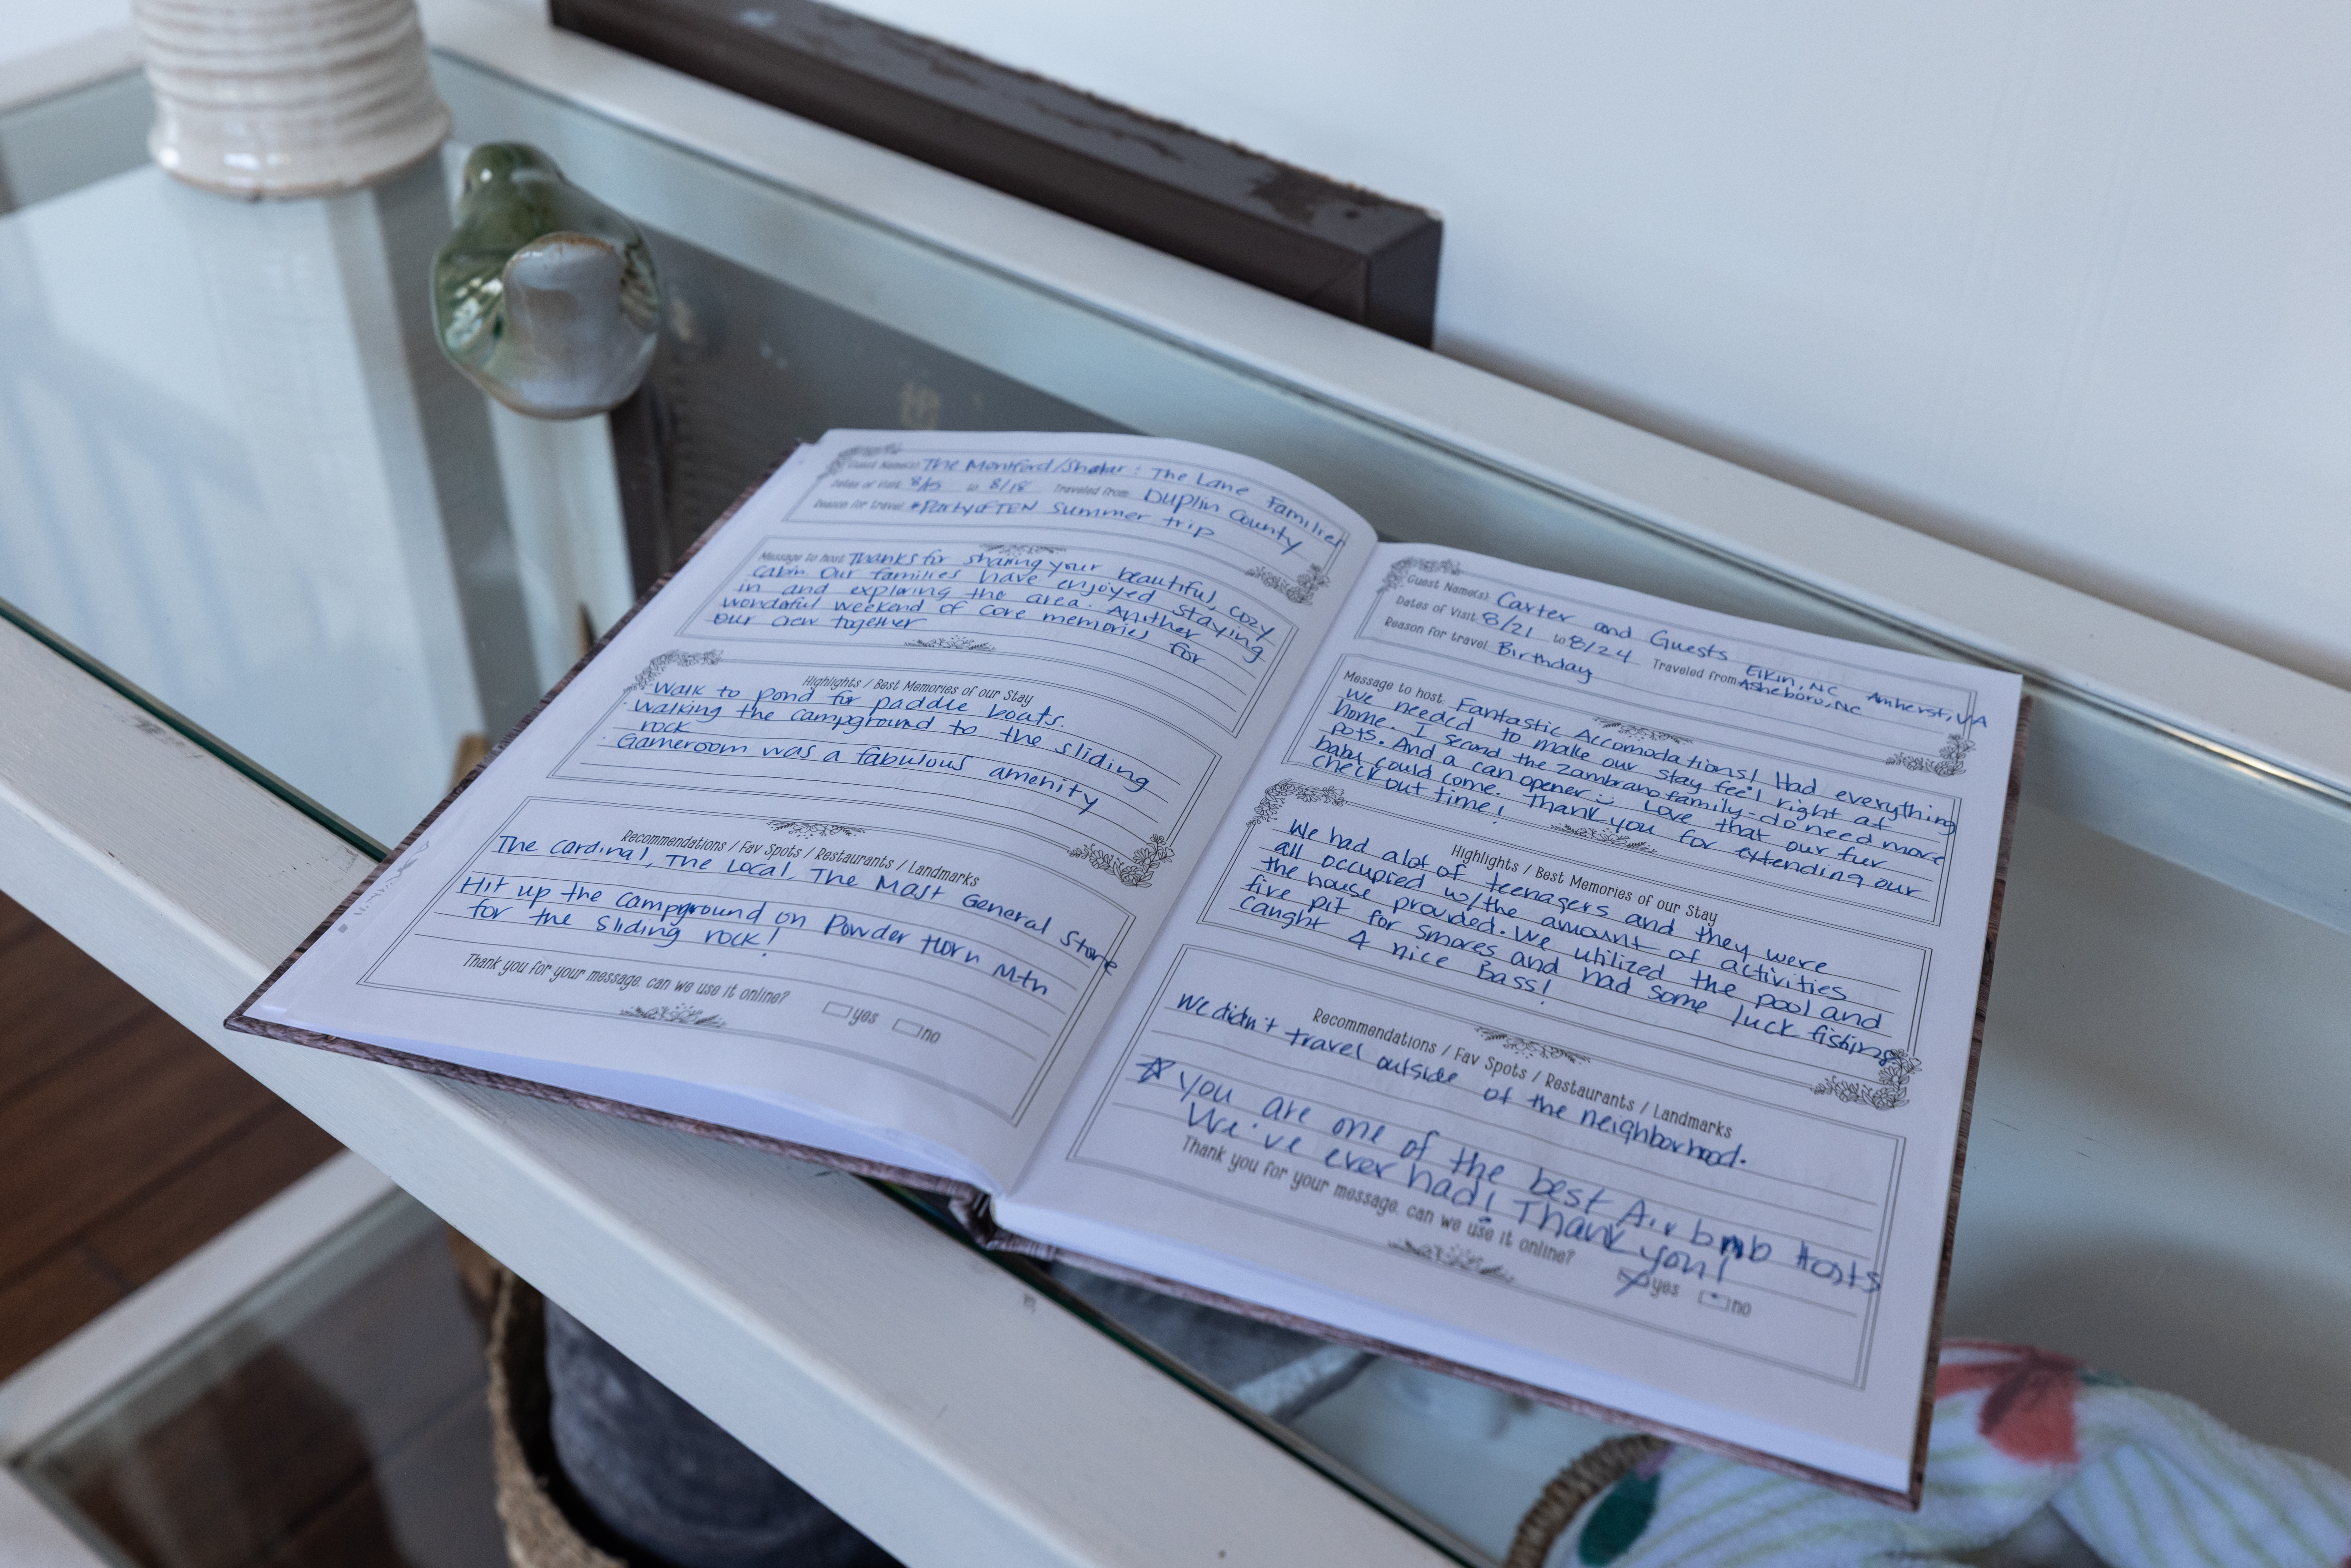 Guest Name(s) The Montford/Shatar : The Lane Families
Dates of Visit 8/15 to 8/18 Traveled from Duplin County
Reason for travel #PartyOFTEN Summer trip
Message to host Thanks for sharing your beautiful, cozy
cabin. Our families have enjoyed staying
in and exploring the area. Another
wonderful weekend of core memories for
our crew together
Highlights / Best Memories of our Stay
· Walk to pond for paddle boats.
· Walking the campground to the sliding
rock
· Gameroom was a fabulous amenity
Recommendations / Fav Spots / Restaurants / Landmarks
The Cardinal, The Local, The Mast General Store
Hit up the campground on Powder Horn Mtn
for the sliding rock!
Thank you for your message, can we use it online? yes no
Guest Name(s) Carter and Guests
Dates of Visit 8/21 to 8/24 Traveled from Elkin, NC Amherst, VA
Asheboro, NC
Reason for travel Birthday
Message to host Fantastic Accomodations! Had everything
we needed to make our stay feel right at
home. I second the Zambrano family - do need more
pots. And a can opener :) Love that our fur
baby could come. Thank you for extending our
check out time!
Highlights / Best Memories of our Stay
We had alot of teenagers and they were
all occupied w/the amount of activities
the house provided. We utilized the pool and
fire pit for smores and had some luck fishing
caught 4 nice Bass!
Recommendations / Fav Spots / Restaurants / Landmarks
We didn't travel outside of the neighborhood.
☆ You are one of the best Airbnb Hosts
We've ever had! Thank you!
Thank you for your message, can we use it online? yes no